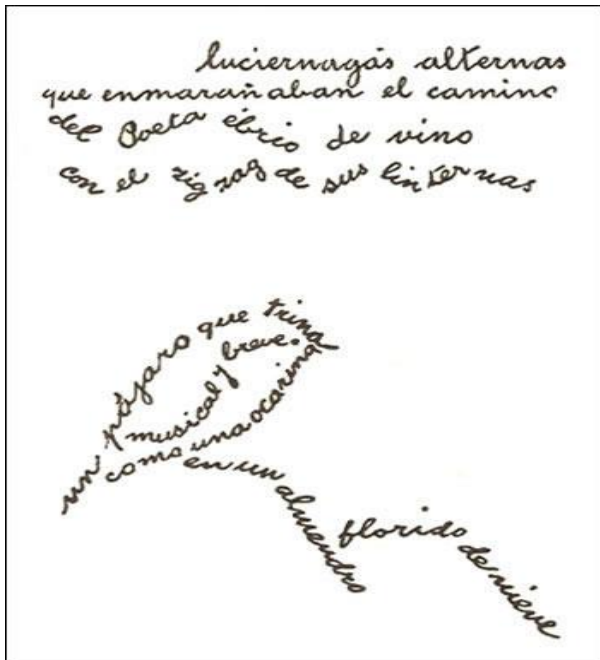 luciernagás alternas
que enmarañaban el camino
del Poeta ébrio de vino
con el zig zag de sus linternas
un pájaro que trina
musical y breve.
como una ocarina
en un almendro
florido de nieve